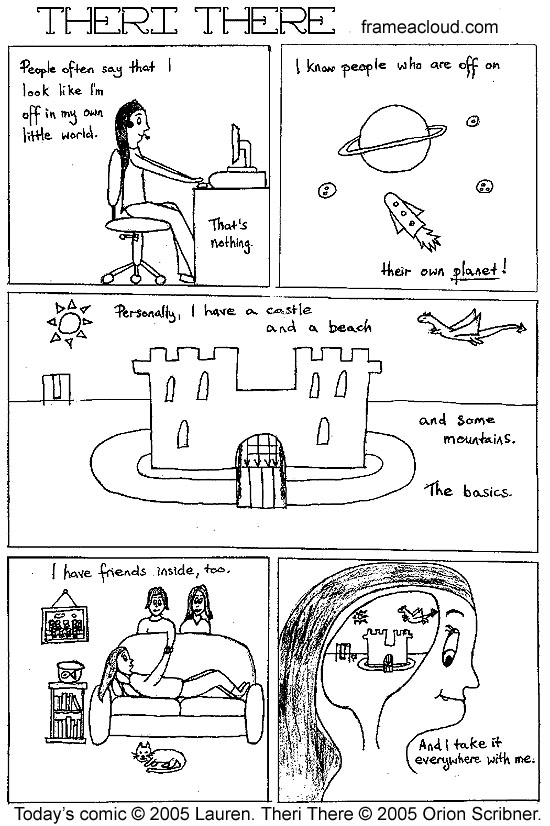 THERI THERE
frameacloud.com
People often say that I
look like I'm
off in my own
little world.
That's
nothing.
I know people who are off on
their own planet!
Personally, I have a castle
and a beach
and some
mountains.
The basics.
I have friends inside, too.
And I take it
everywhere with me.
Today's comic © 2005 Lauren. Theri There © 2005 Orion Scribner.